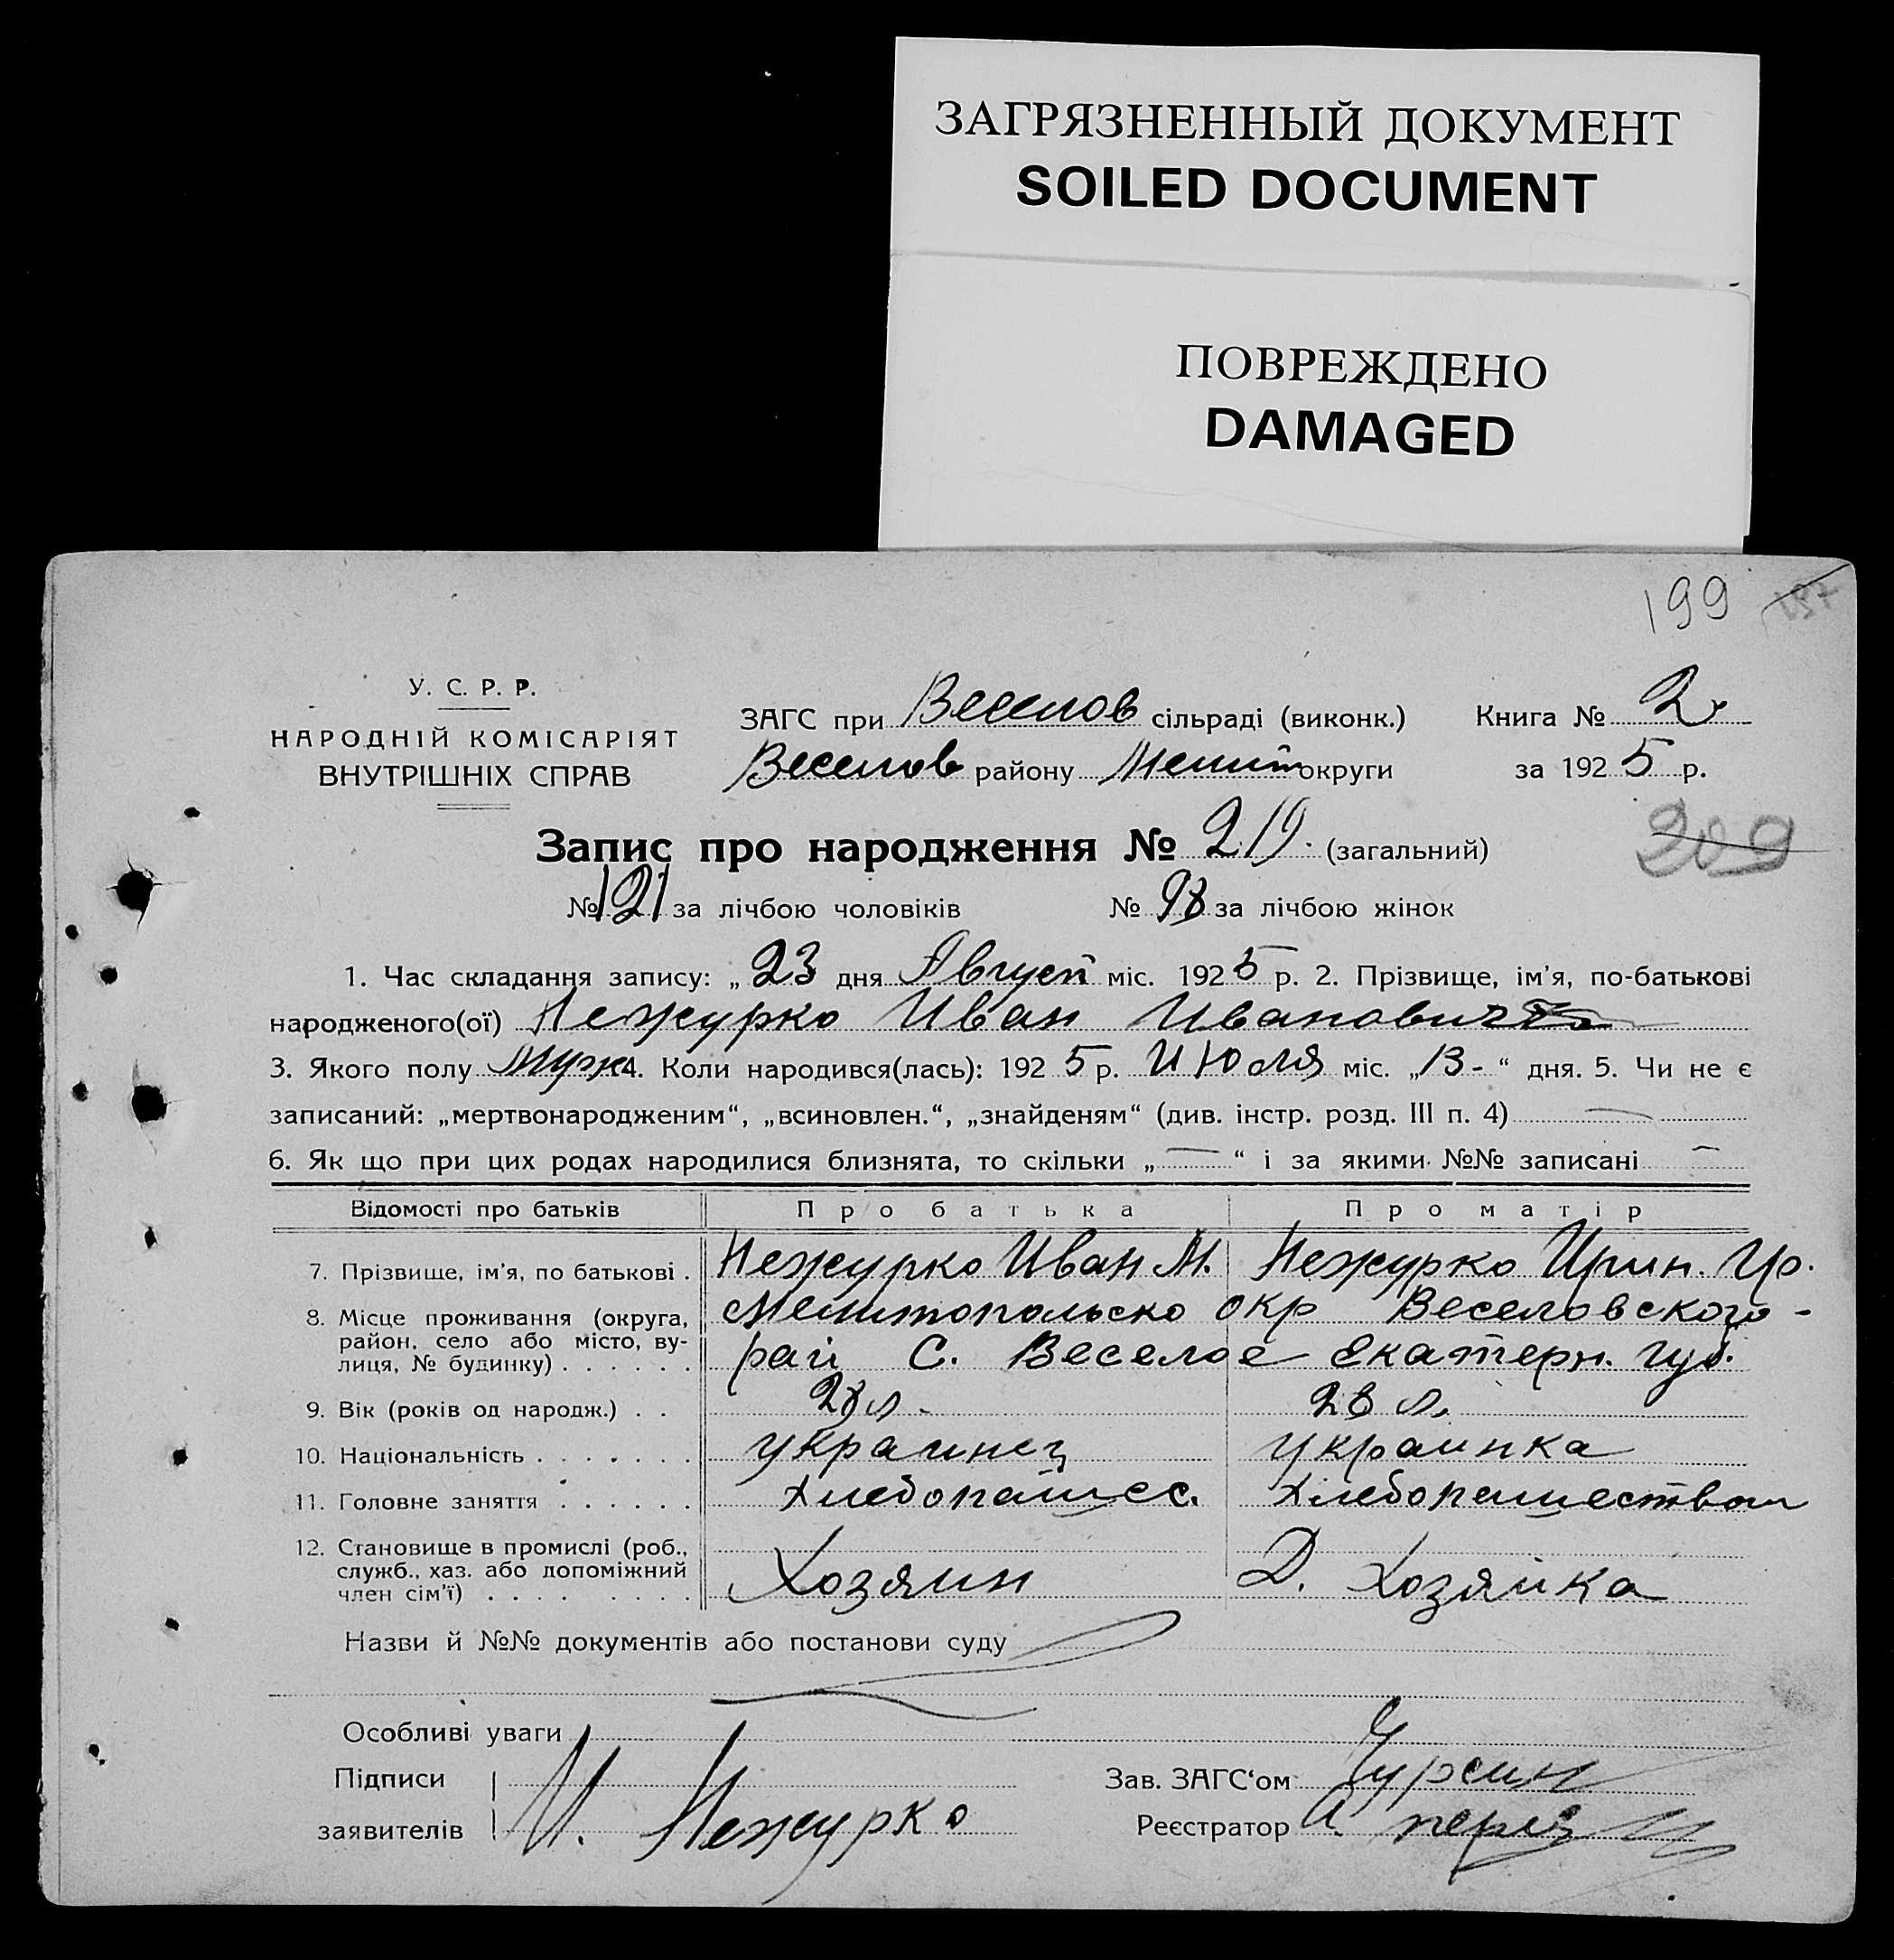 ЗАГРЯЗНЕННЫЙ ДОКУМЕНТ
SOILED DOCUMENT
ПОВРЕЖДЕНО
DAMAGED
199
У. С. Р. Р.
НАРОДНІЙ КОМІСАРІЯТ
ВНУТРІШНІХ СПРАВ
ЗАГС при Веселов сільраді (виконк.) Книга № 2
Веселов району Мелит округи за 1925 р.
Запис про народження № 219. (загальний)
209
№ 121 за лічбою чоловіків № 98 за лічбою жінок
1. Час складання запису: „ 23 дня Август міс. 1925 р. 2. Прізвище, ім’я, по-батькові
народженого(ої) Нежурко Иван Иванович
3. Якого полу Муж 4. Коли народився(лась): 1925 р. Июля міс. „13-“ дня. 5. Чи не є
записаний: „мертвонародженим“, „всиновлен.“, „знайденям“ (див. інстр. розд. III п. 4) —
6. Як що при цих родах народилися близнята, то скільки „ — “ і за якими №№ записані —
Відомості про батьків Про батька Про матір
7. Прізвище, ім’я, по батькові . Нежурко Иван М. Нежурко Ирин. Гр.
8. Місце проживання (округа, Мелитопольско окр Веселовского-
район, село або місто, ву-
лиця, № будинку) . . . . . . рай С. Веселое Екатерн. губ.
9. Вік (років од народж.) . . 28 л. 28 л.
10. Національність . . . . . . . украинец украинка
11. Головне заняття . . . . . . Хлебопашес. Хлебопашеством
12. Становище в промислі (роб.,
служб., хаз. або допоміжний
член сім’ї) . . . . . . . . Хозяин Д. Хозяйка
Назви й №№ документів або постанови суду
Особливі уваги
Підписи Зав. ЗАГС‘ом Чурсин
заявителів И. Нежурко Реєстратор